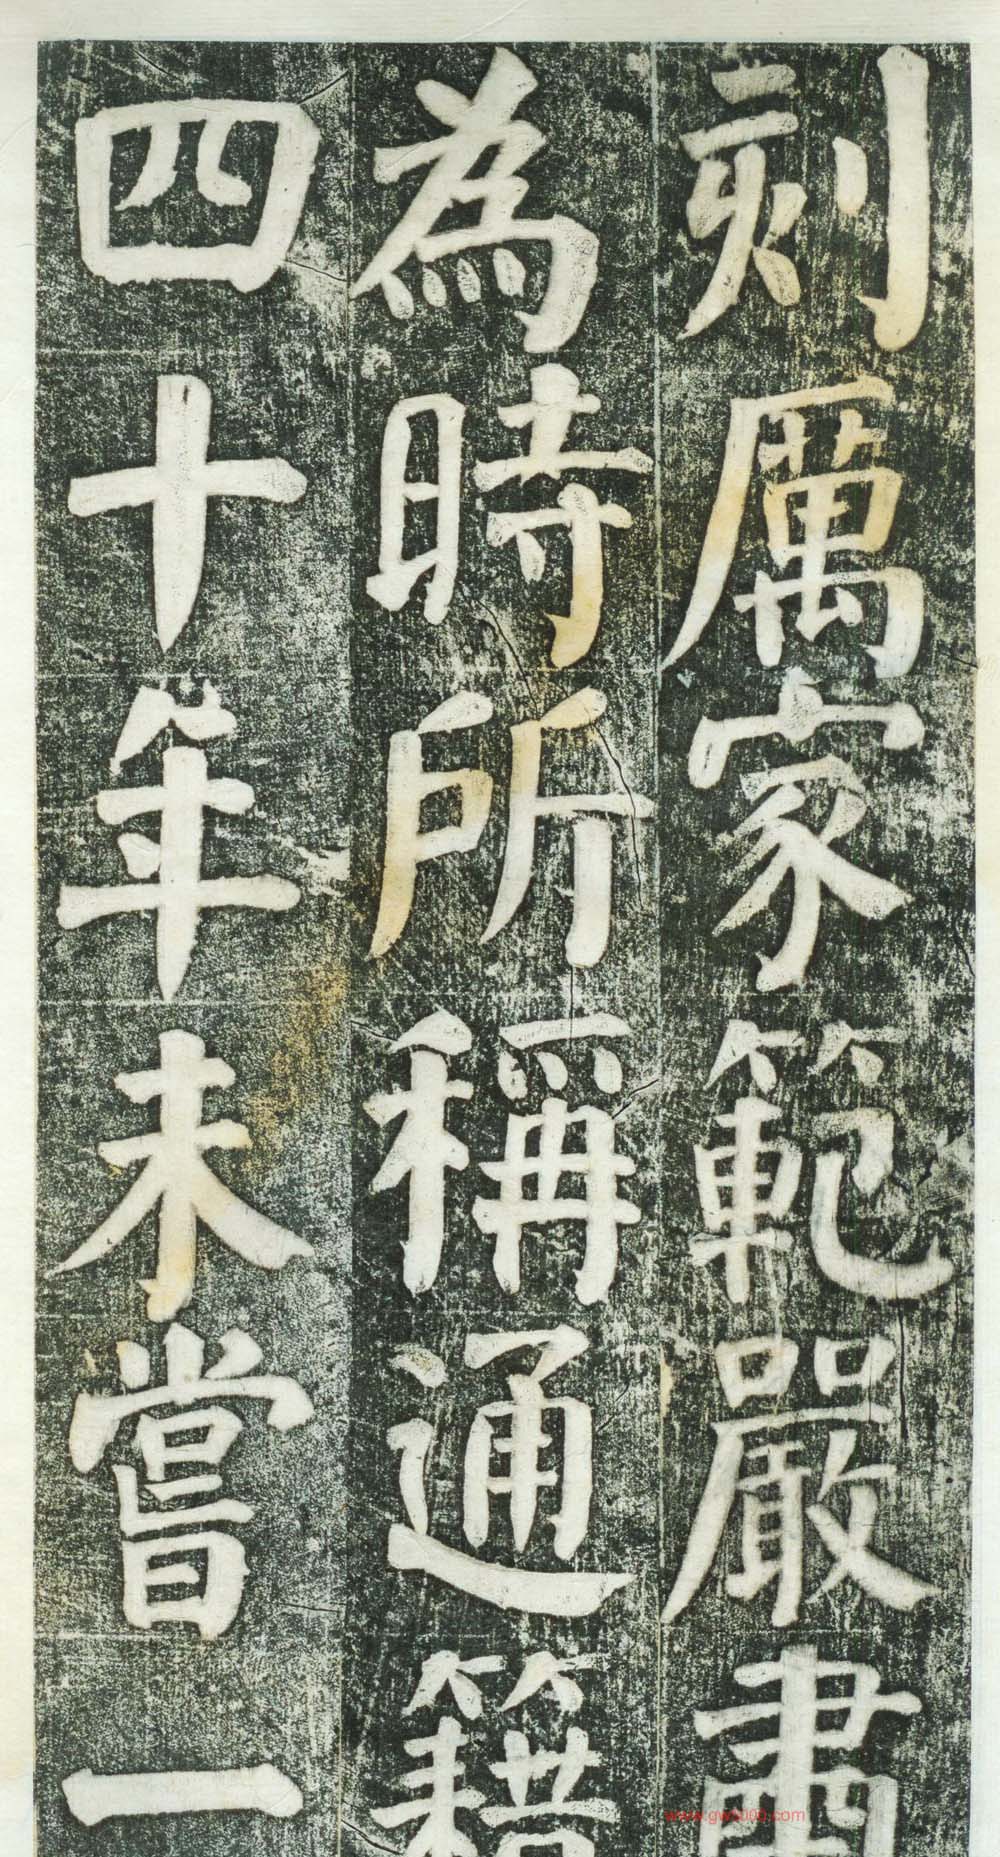 刻厲家範嚴肅
為時所稱通籍
四十年未嘗一
www.gwz000.com